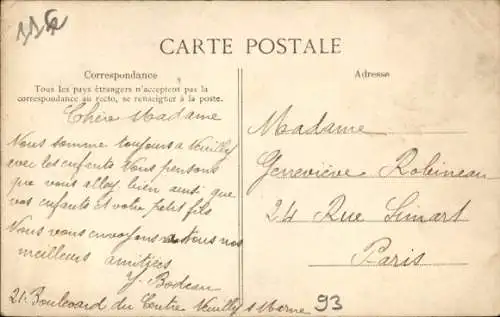 114
CARTE POSTALE
Correspondance
Tous les pays étrangers n'acceptent pas la
correspondance au recto, se renseigner à la poste.
Chère Madame
Nous somme toujours a Neuilly
avec les enfants Nous pensons
que vous allez bien ainsi que
vos enfants et votre petit fils
Nous vous envoyons Nous nos
meilleurs amitiées
Y. Bodeau
21 Boulevard du Centre Neuilly s Marne 93
Adresse
Madame
Geneviève Robineau
24 Rue Simart
Paris